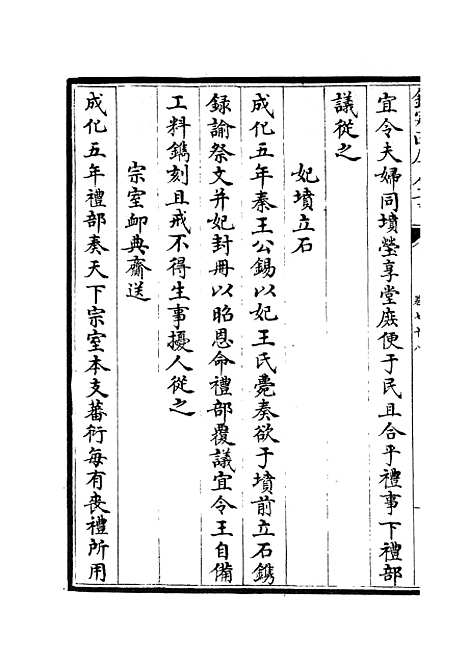 宜令夫婦同墳塋享堂庶便于民且合乎禮事下禮部
議從之
妃墳立石
成化五年秦王公錫以妃王氏薨奏欲于墳前立石鐫
録諭祭文并妃封冊以昭恩命禮部覆議宜令王自備
工料鐫刻且戒不得生事擾人從之
宗室卹典齋送
成化五年禮部奏天下宗室本支蕃衍每有喪禮所用